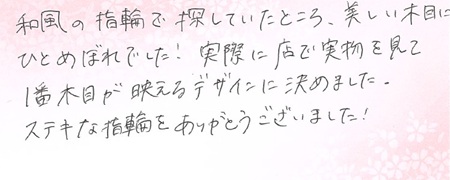 和風の指輪で探していたところ、美しい木目に
ひとめぼれでした！実際に店で実物を見て
1番木目が映えるデザインに決めました。
ステキな指輪をありがとうございました！